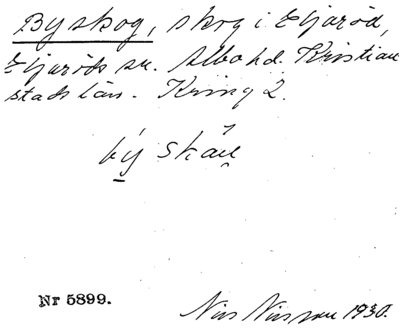 Byskog, skog i Eljaröd,
Eljaröds sn. Albo hd. Kristian
stads län. Kring 2.
bý skåu
Nr 5899.
Nils Nilsson 1930.